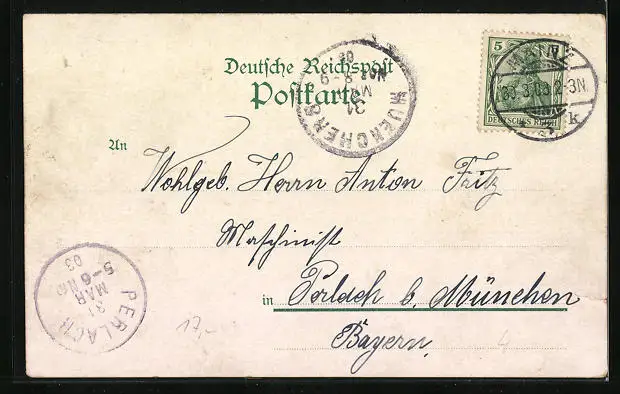 Deutsche Reichspost
Postkarte
5
DEUTSCHES REICH
MAINZ
30.3.03.2-3N.
k
MUENCHEN 8
31
MAR
03
An
Wohlgeb. Herrn Anton Fritz
Maschinist
in Perlach b. München
Bayern.
PERLACH
31
MAR
5-6 Nm
03
17,-
4